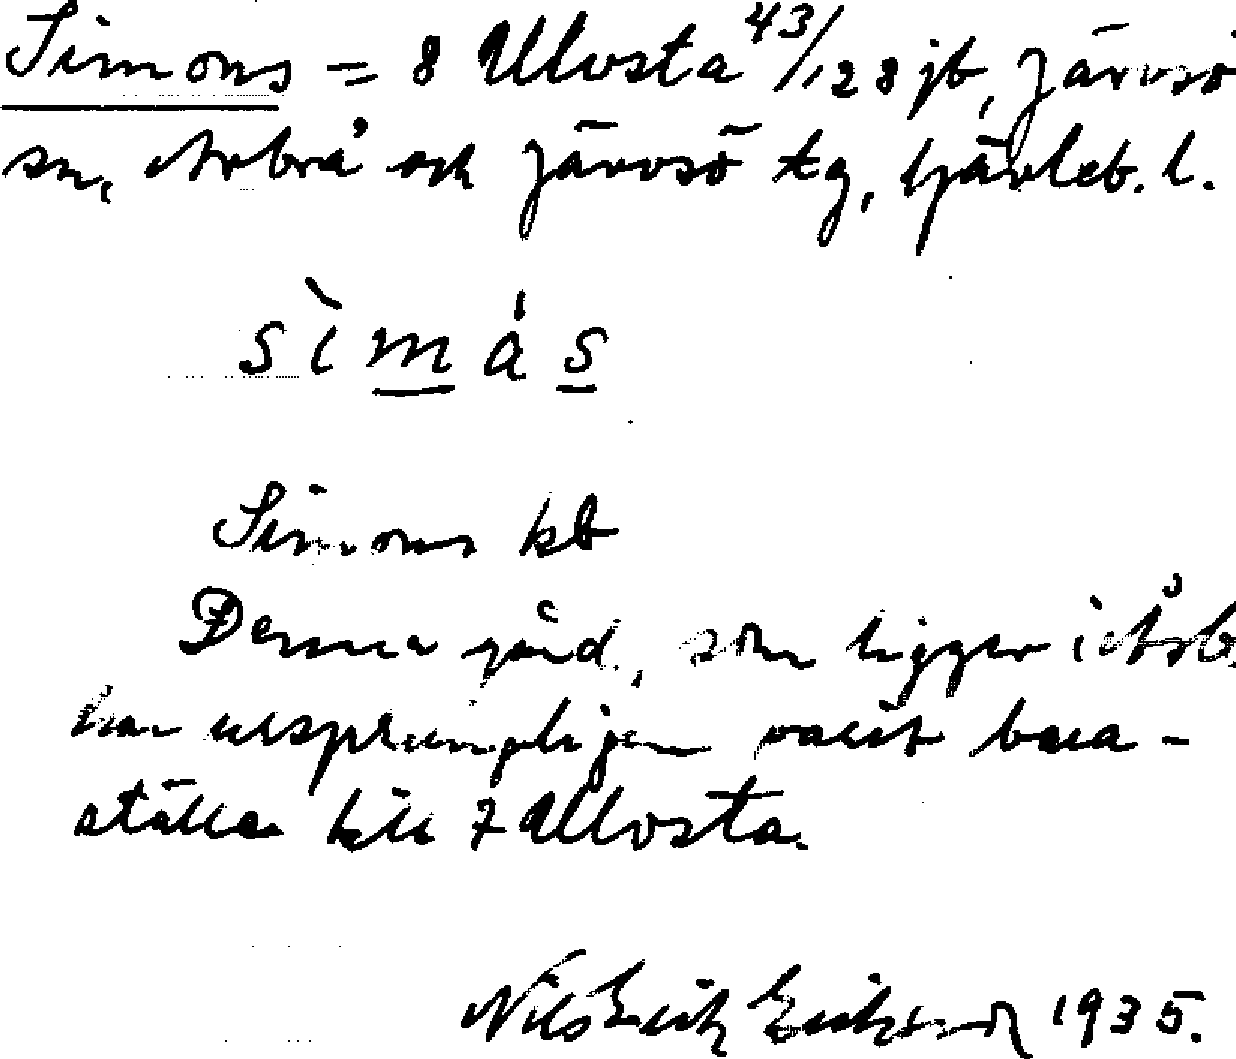 Simons = 8 Ullvsta 43/128 jb, Järvsö
sn, Arbrå och Järvsö tg, Gävleb. l.
sìmás
Simons kb
Denna gård, som ligger i Arb.
har ursprungligen varit bara-
ställe till 7 Ullvsta.
Nils Erik Eriksson 1935.